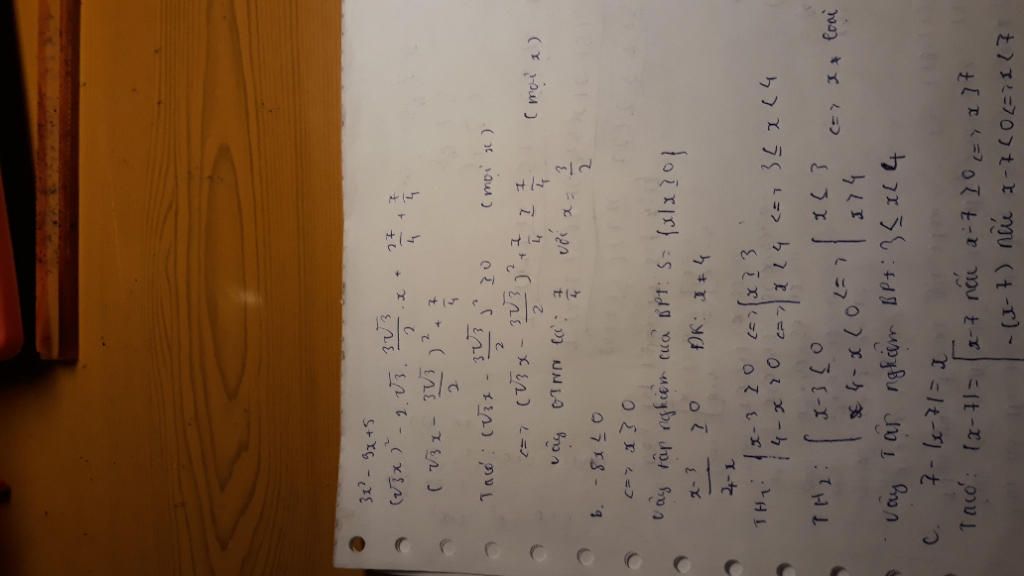 3x² - 9x + 5
(√3x)² - 2.√3. 3√3/2 . x + 27/4 + 7/4
(√3x - 3√3/2)² + 7/4
Ta có: (√3x - 3√3/2)² ≥ 0 (mọi x)
<=> (√3x - 3√3/2)² + 7/4 ≥ 7/4 (mọi x)
Vậy GTNN là: 7/4 với x = 3/2
b. -8x ≤ 0
<=> x ≥ 0
Vậy tập nghiệm của BPT: S = {x|x ≥ 0}
x-3/4-x ≥ 0 ĐK: x ≠ 4
TH1: { x-3 ≥ 0 <=> { x ≥ 3
4-x > 0 <=> x < 4 <=> 3 ≤ x < 4
TH2: { x-3 ≤ 0
4-x < 0 <=> { x ≤ 3
x > 4 <=> x loại
Vậy tập nghiệm BPT: 3 ≤ x < 4
c. 7 - |x-7| = x
Ta có: |x-7| = x-7 nếu x-7 ≥ 0 <=> x ≥ 7
-(x-7) nếu x-7 < 0 <=> x < 7